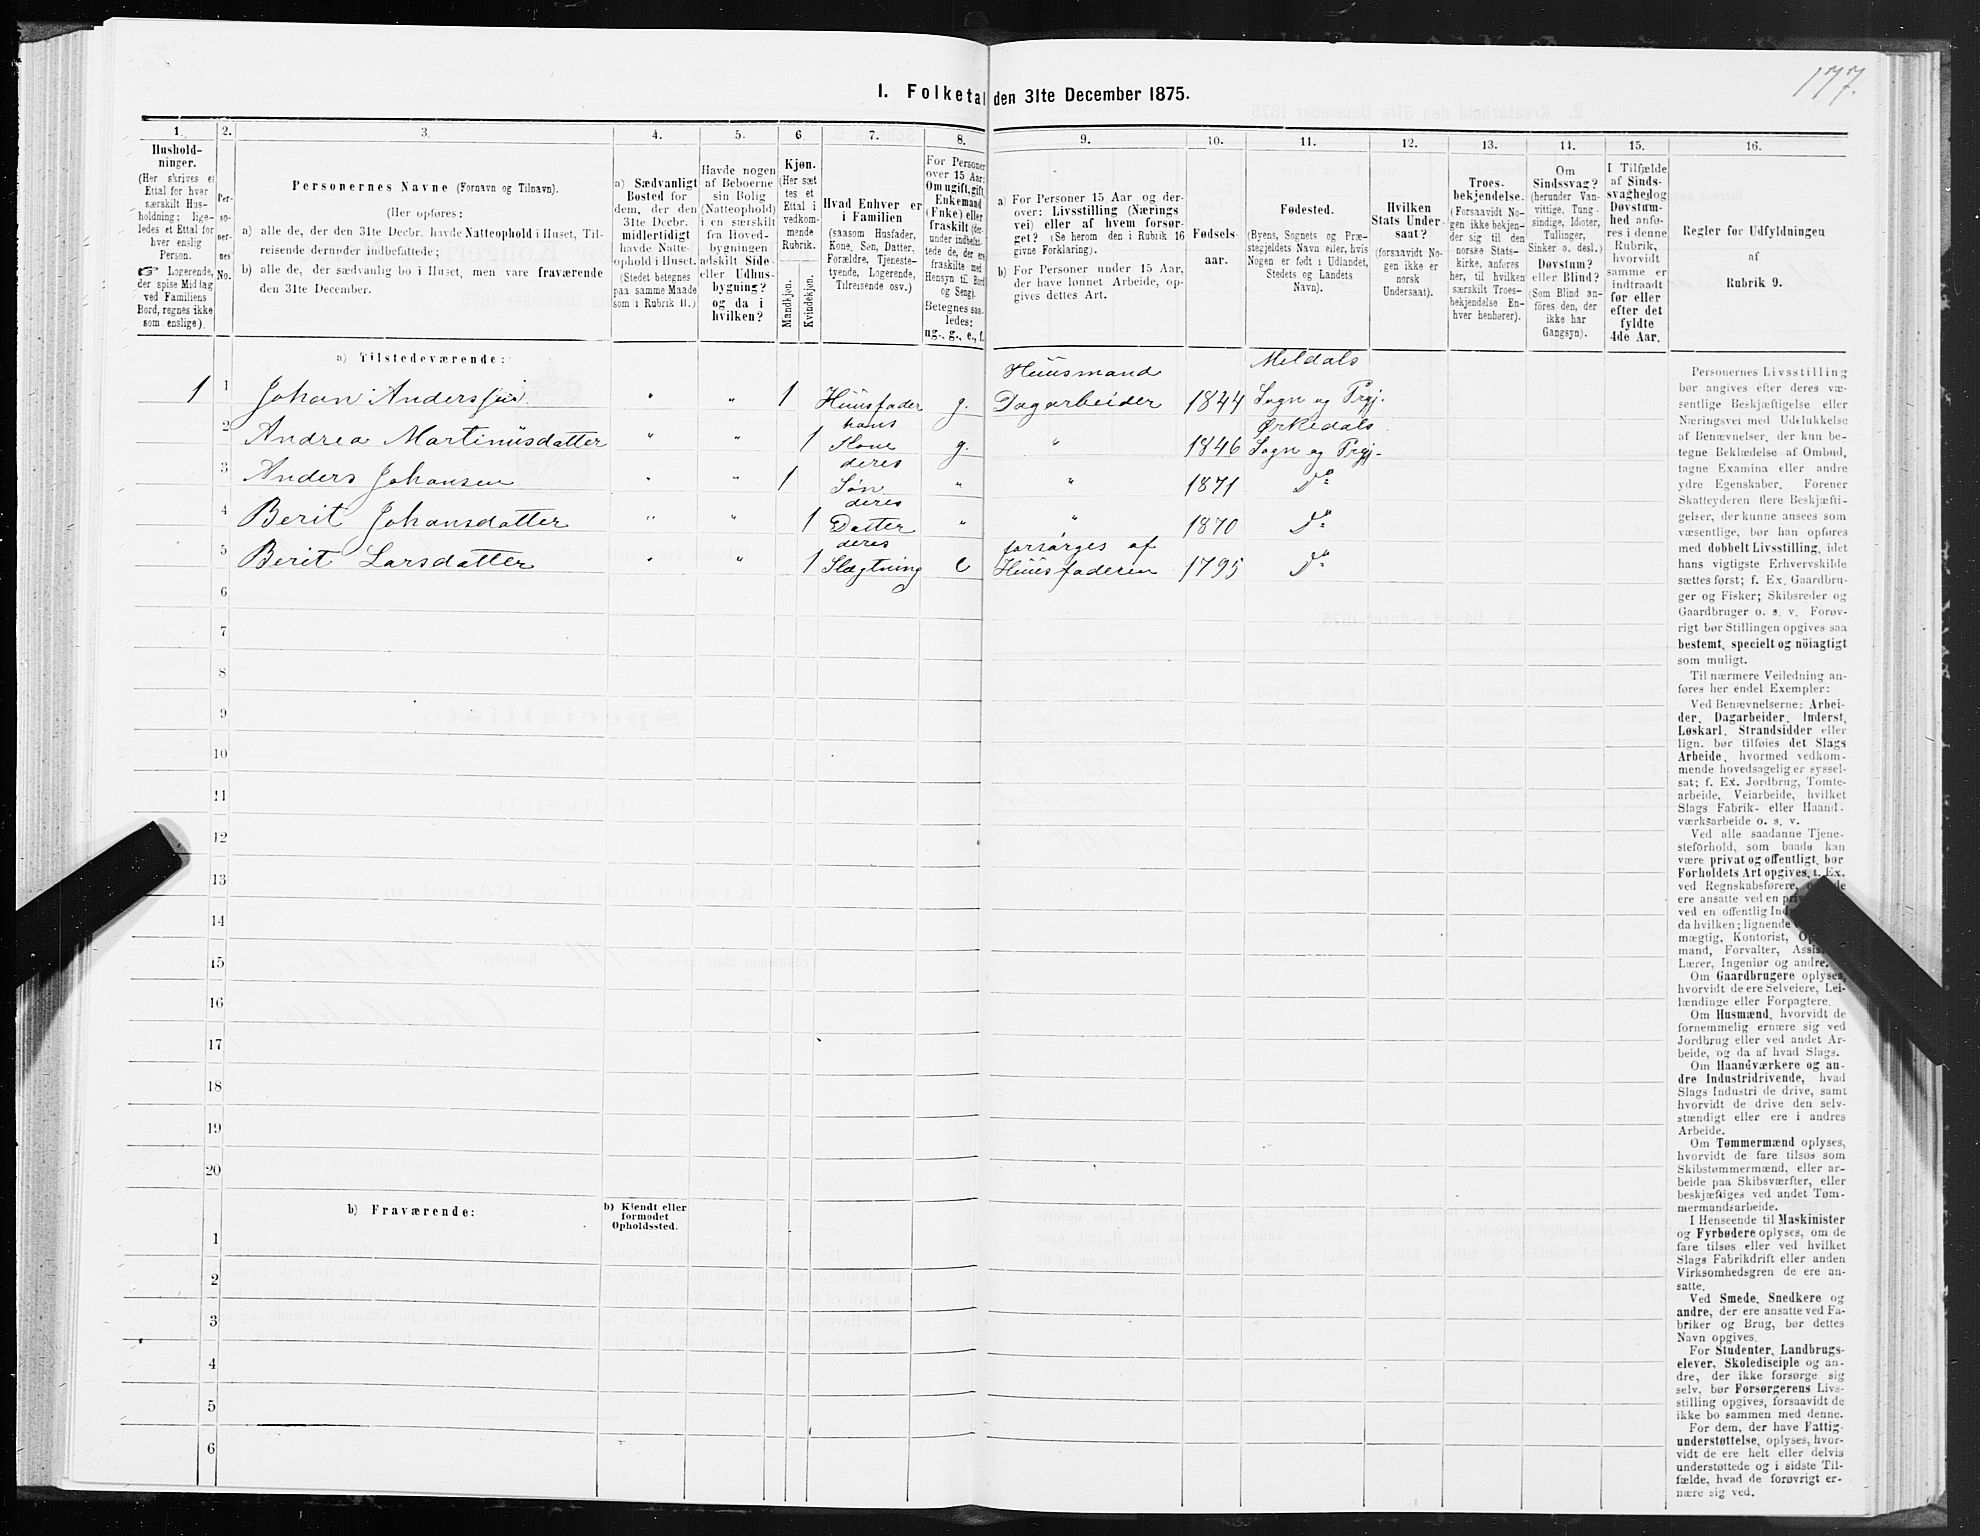 177.
I. Folketal den 31te December 1875.
1. 2. 3. 4. 5. 6. 7. 8. 9. 10. 11. 12. 13. 14. 15. 16.
Hushold-
ninger.
(Her skrives et
Ettal for hver
særskilt Hus-
holdning; lige-
ledes et Ettal for
hver enslig
Person.
☞ Logerende,
der spise Middag
ved Familiens
Bord, regnes ikke
som enslige).
Per-
so-
ner-
nes
No.
Personernes Navne (Fornavn og Tilnavn).
(Her opføres:
a) alle de, der den 31te Decbr. havde Natteophold i Huset, Til-
reisende derunder indbefattede;
b) alle de, der sædvanlig bo i Huset, men vare fraværende
den 31te December.
a) Sædvanligt
Bosted for
dem, der den
31te Decbr.
midlertidigt
havde Natte-
ophold i Huset.
(Stedet betegnes
paa samme Maade
som i Rubrik 11.)
Havde nogen
af Beboerne
sin Bolig
(Natteophold)
i en særskilt
fra Hoved-
bygningen
adskilt Side-
eller Udhus-
bygning?
og da i
hvilken?
Kjøn.
(Her sæt-
tes et
Ettal i
vedkom-
mende
Rubrik.
Mandkjøn.
Kvindekjøn.
Hvad Enhver er
i Familien
(saasom Husfader,
Kone, Søn, Datter,
Forældre, Tjeneste-
tyende, Logerende,
Tilreisende osv.)
For Personer
over 15 Aar:
Om ugift, gift,
Enkemand
(Enke) eller
fraskilt (der-
under indbefat-
tede de, der ere
fraskilte med
Hensyn til Bord
og Seng).
Betegnes saa-
ledes:
ug., g., e., f.
a) For Personer 15 Aar og der-
over: Livsstilling (Nærings
vei) eller af hvem forsør-
get? (Se herom den i Rubrik 16
givne Forklaring).
b) For Personer under 15 Aar,
der have lønnet Arbeide, op-
gives dettes Art.
Fødsels-
aar.
Fødested.
(Byens, Sognets og Præ-
stegjeldets Navn eller, hvis
Nogen er født i Udlandet,
Stedets og Landets
Navn).
Hvilken
Stats Under-
saat?
(forsaavidt No-
gen ikke er
norsk
Undersaat).
Troes-
bekjendelse.
(Forsaavidt No-
gen ikke bekjen-
der sig til den
norske Stats-
kirke, anføres
her, til hvilken
særskilt Troes-
bekjendelse En-
hver henhører).
Om
Sindssvag?
(herunder Van-
vittige, Tung-
sindige, Idioter,
Tullinger,
Sinker o. desl.)
Døvstum?
eller Blind?
(Som Blind an-
føres den, der
ikke har
Gangsyn).
I Tilfælde
af Sinds-
svaghed og
Døvstum-
hed anfø-
res i denne
Rubrik,
hvorvidt
samme er
indtraadt
før eller
efter det
fyldte
4de Aar.
Regler for Udfyldningen
af
Rubrik 9.
a) Tilstedeværende:
Huusmand Meldals
1 1 Johan Anderssen " " 1 Huusfader g. Dagarbeider 1844 Sogn og Prgj.
hans Ørkedals
2 Andrea Martinusdatter " " 1 Kone g. " 1846 Sogn og Prgj.
deres
3 Anders Johansen " " 1 Søn " " 1871 Do
deres
4 Berit Johansdatter " " 1 Datter " " 1870 Do
deres forsørges af
5 Berit Larsdatter " " 1 Slægtning e Huusfaderen 1795 Do
6
7
8
9
10
11
12
13
14
15
16
17
18
19
20
b) Fraværende:
b) Kjendt eller
formodet
Opholdssted.
1
2
3
4
5
6
Personernes Livsstilling
bør angives efter deres væ-
sentlige Beskjæftigelse eller
Næringsvei med Udelukkelse
af Benævnelser, der kun be-
tegne Beklædelse af Ombud,
tagne Examina eller andre
ydre Egenskaber. Forener
Skatteyderen flere Beskjæfti-
gelser, der kunne ansees som
væsentlige, bør han opføres
med dobbelt Livsstilling, idet
hans vigtigste Erhvervskilde
sættes først; f. Ex. Gaardbru-
ger og Fisker; Skibsreder og
Gaardbruger o. s. v. Forøv-
rigt bør Stillingen opgives saa
bestemt, specielt og nöiagtigt
som muligt.
Til nærmere Veiledning an-
føres her endel Exempler:
Ved Benævnelserne: Arbei-
der, Dagarbeider, Inderst,
Løskarl, Strandsidder eller
lign. bør tilføies det Slags
Arbeide, hvormed vedkom-
mende hovedsagelig er syssel-
sat; f. Ex. Jordbrug, Tomte-
arbeide, Veiarbeide, hvilket
Slags Fabrik- eller Haand-
værksarbeide o. s. v.
Ved alle saadanne Tjene-
steforhold, som baade kan
være privat og offentligt, bør
Forholdets Art opgives, f. Ex.
ved Regnskabsførere,
ere ansatte ved en
ved en offentlig
da hvilken; lignende
mægtig, Kontorist,
mand, Forvalter,
Lærer, Ingeniør og andre.
Om Gaardbrugere oplyses,
hvorvidt de ere Selveiere, Lei-
lændinge eller Forpagtere.
Om Husmænd, hvorvidt de
fornemmelig ernære sig ved
Jordbrug eller ved andet Ar-
beide, og da af hvad Slags.
Om Haandværkere og an-
dre Industridrivende, hvad
Slags Industri de drive, samt
hvorvidt de drive den selv-
stændigt eller ere i andres
Arbeide.
Om Tømmermænd oplyses,
hvorvidt de fare tilsøs som
Skibstømmermænd, eller ar-
beide paa Skibsværfter, eller
beskjæftiges ved andet Tøm-
mermandsarbeide.
I Henseende til Maskinister
og Fyrbødere oplyses, om de
fare tilsøs eller ved hvilket
Slags Fabrikdrift eller anden
Virksomhedsgren de ere an-
satte.
Ved Smede, Snedkere og
andre, der ere ansatte ved Fa-
briker og Brug, bør dettes
Navn opgives.
For Studenter, Landbrugs-
elever, Skoledisciple og an-
dre, der ikke forsørge sig
selv, bør Forsørgerens Livs-
stilling opgives, forsaavidt de
ikke bo sammen med denne.
For dem, der have Fattig-
understøttelse, oplyses, hvor-
vidt de ere helt eller delvis
understøttede og i sidste Til-
fælde, hvad de forøvrigt er-
nære sig ved.